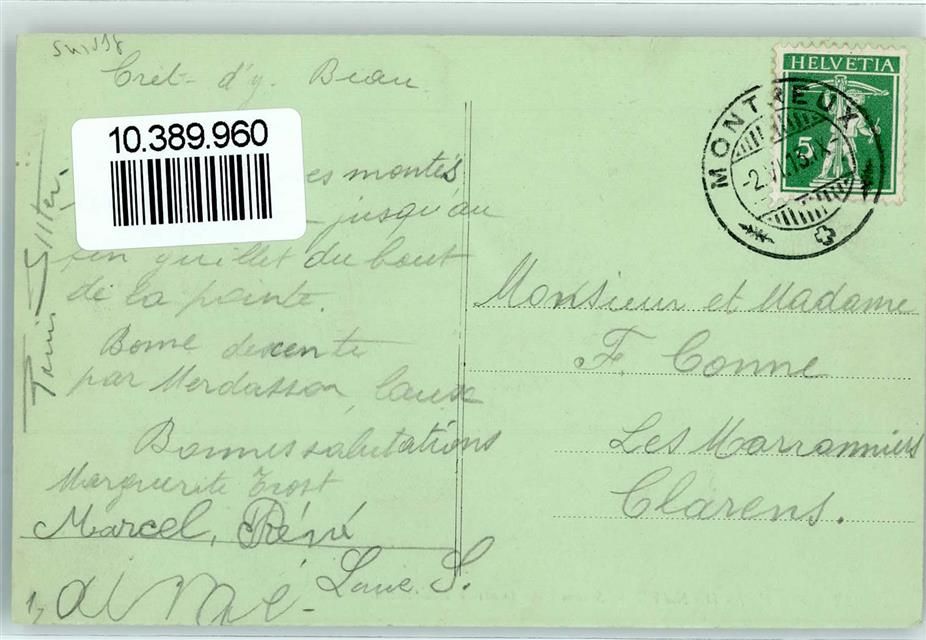 Suisse
Cret- d'y. Biau
10.389.960
es montés
jusqu'au
fin quillet du bout
de la pointe.
Bonne descente
par Merdasson, Caux
Bonnes salutations
Marguerite Trost
Marcel, Réné
Louis S.
HELVETIA
5
MONTREUX
Monsieur et Madame
F. Conne
Les Marronniers
Clarens.